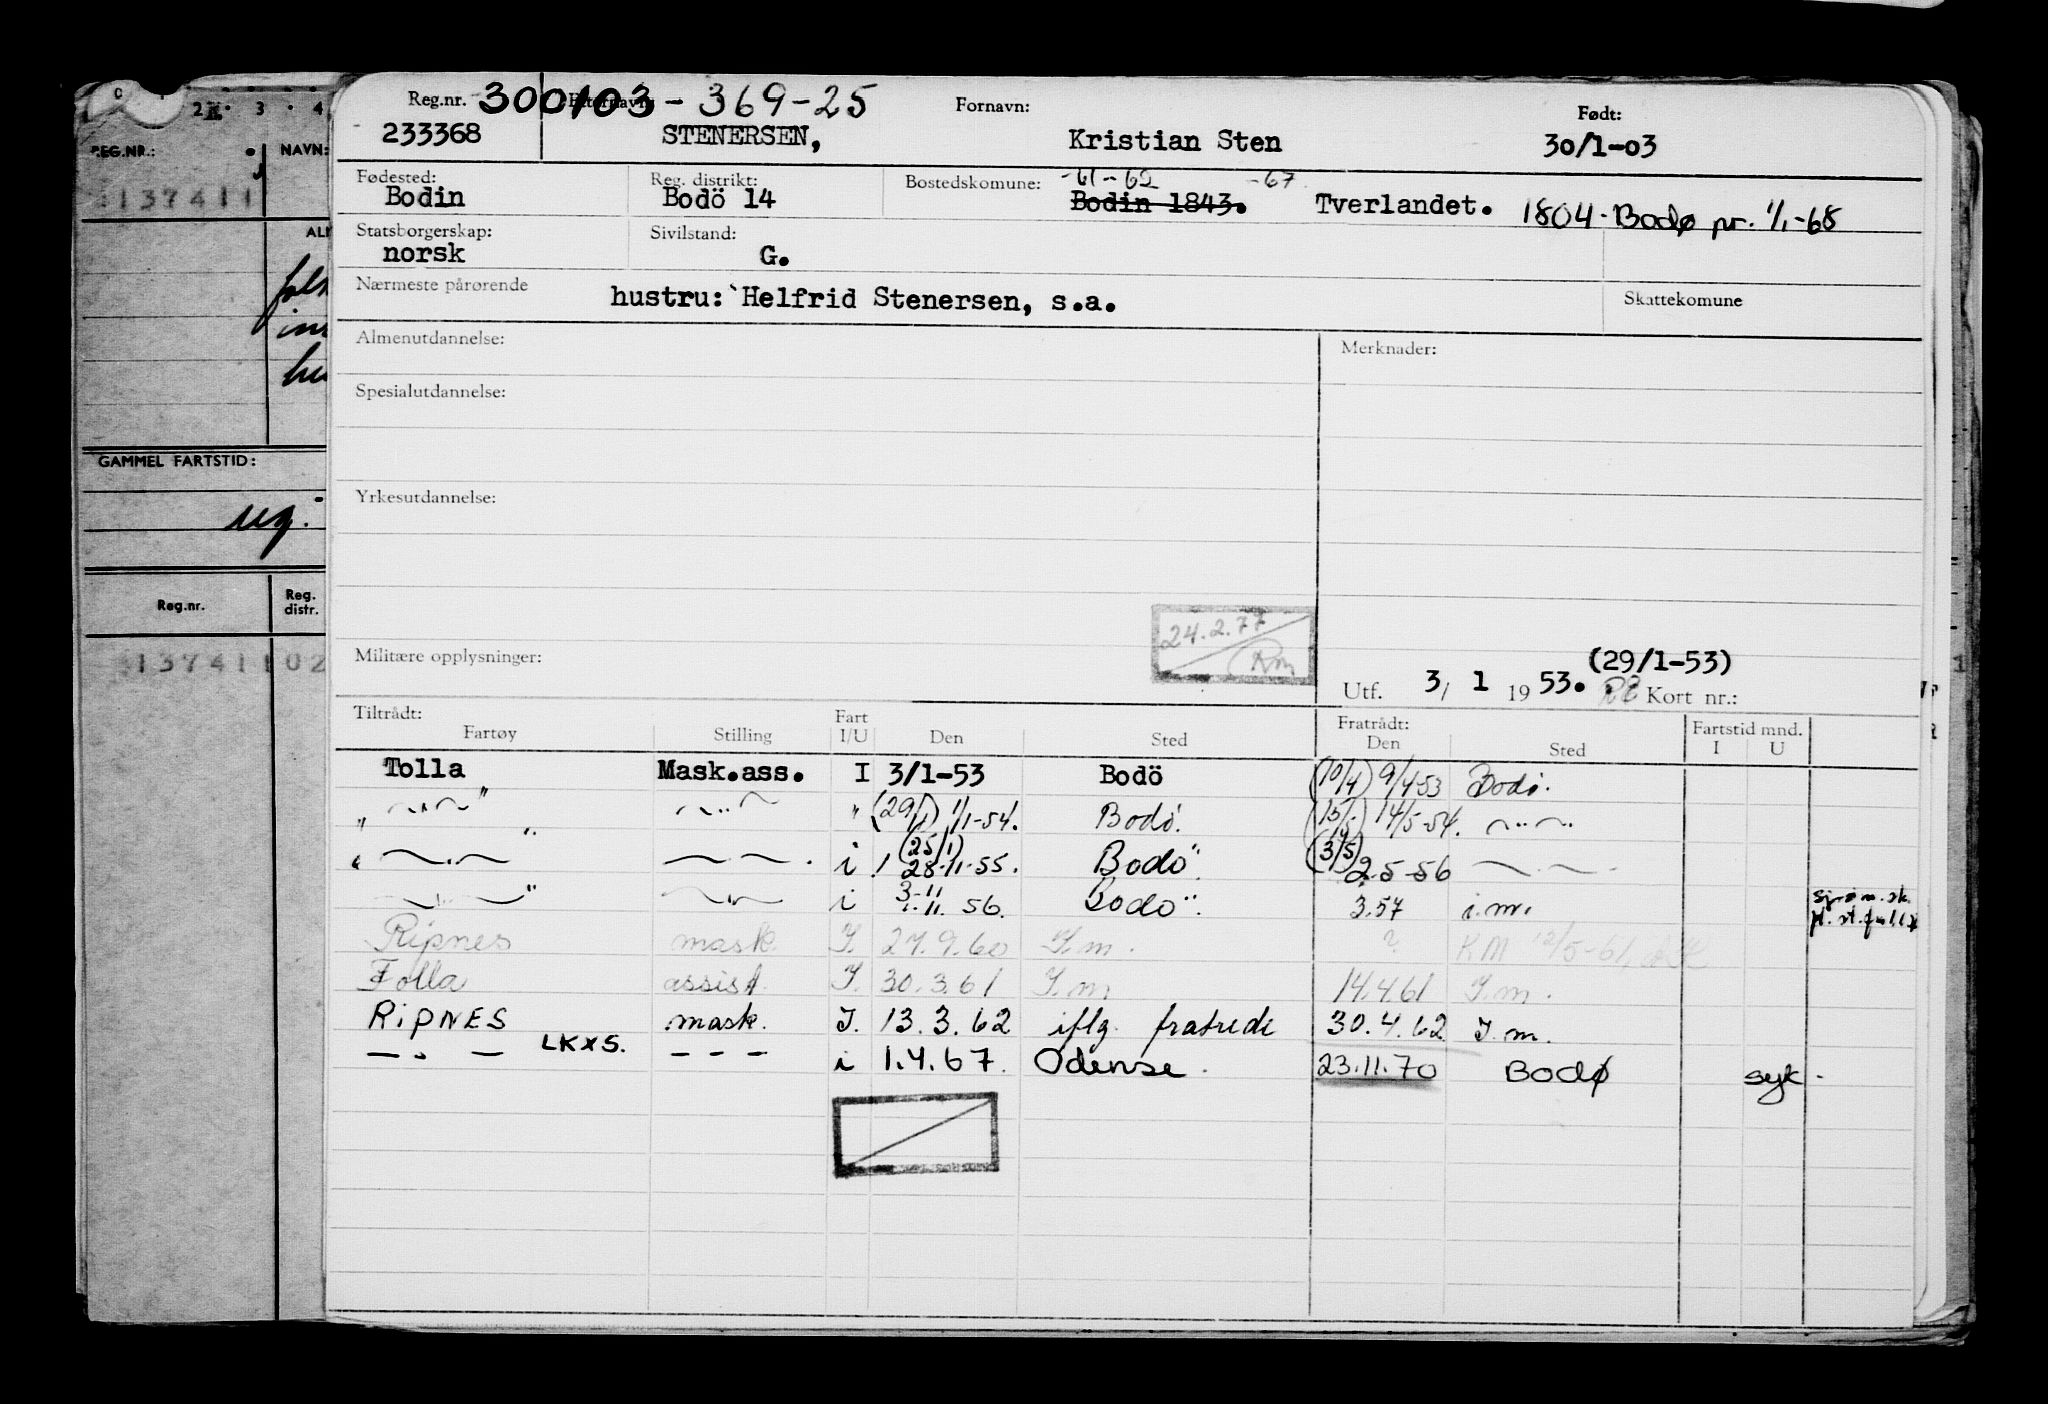 Reg.nr. 300103-369-25 Etternavn: Fornavn: Født:
233368 STENERSEN, Kristian Sten 30/1-03
Fødested: Reg. distrikt: Bostedskomune: -61-62 -67
Bodin Bodö 14 Bodin 1843. Tverlandet. 1804-Bodø pr. 1/1-68
Statsborgerskap: Sivilstand:
norsk G.
Nærmeste pårørende hustru: Helfrid Stenersen, s.a. Skattekomune
Almenutdannelse: Merknader:
Spesialutdannelse:
Yrkesutdannelse:
24.2.77
Militære opplysninger: (29/1-53)
Utf. 3/ 1 19 53. Kort nr.:
Tiltrådt: Fart Fratrådt: Fartstid mnd.
Fartøy Stilling I/U Den Sted Den Sted I U
Tolla Mask.ass. I 3/1-53 Bodö (10/4) 9/4-53 Bodø.
" —„— " —„— " (29/1) 1/1-54. Bodø. (15/5) 14/5-54. —„—
" —„— —„— . i (25/1) 28-11-55. Bodö (3/5) 2-5-56 —„—
—„— " —„— i 3-11 1.11. 56. Bodö 3.57 i.m.
Ripnes mask I. 27.9.60 I.m. ? KM 12/5-61
Folla assist. I. 30.3.61 I.m 14.4.61 I.m.
RiPNES mask. I. 13.3.62 iflg. fratrede 30.4.62 I.m.
— „ — LKXS. – – – i 1.4.67. Odense. 23.11.70 BODØ syk.
REG.NR.: NAVN:
137411
GAMMEL FARTSTID:
Reg.nr. Reg. distr.
137411 02